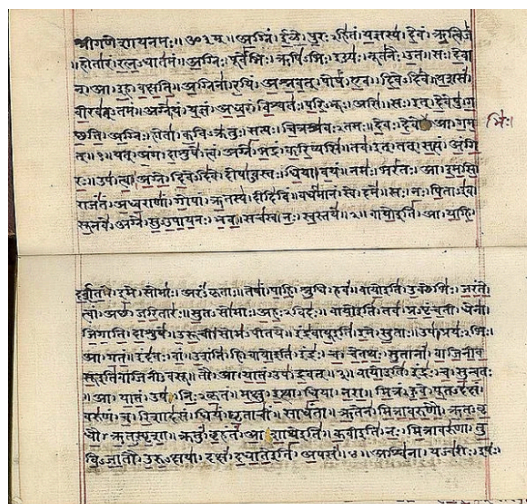 श्रीगणेशायनमः॥ॐ३म्॥अ॒ग्निं।ई॒ळे॒।पु॒रःऽहि॑तं।य॒ज्ञस्य॑।दे॒वं।ऋ॒त्विजं॑
।होता॑रं।र॒त्न॒ऽधात॑मं।अ॒ग्निः।पूर्वे॑भिः।ऋषि॑ऽभिः।ईड्यः॑।नूत॑नैः।उ॒त।सः।दे॒वा
न्।आ।इ॒ह।व॒क्ष॒ति॒।अ॒ग्निना॑।र॒यिं।अ॒श्न॒व॒त्।पोषं॑।ए॒व।दि॒वेऽदि॑वे।य॒शसं॑
वी॒रव॑त्ऽतमं।अग्ने॑।यं।य॒ज्ञं।अ॒ध्व॒रं।वि॒श्वतः॑।प॒रि॒ऽभूः।असि॑।सः।इत्।दे॒वेषु॑।ग॒
च्छ॒ति॒।अ॒ग्निः।होता॑।क॒विऽक्र॑तुः।स॒त्यः।चि॒त्रश्र॑वःऽतमः।दे॒वः।दे॒वे।आ।ग॒म॒
त्॥१॥यत्।अं॒ग।दा॒शुषे॑।त्वं।अग्ने॑।भ॒द्रं।क॒रि॒ष्यसि॑।तव॑।इत्।तत्।स॒त्यं।अं॒गि॒
रः॒।उप॑।त्वा॒।अ॒ग्ने॒।दि॒वेऽदि॑वे।दोषा॑ऽवस्तः।धि॒या।व॒यं।नमः॑।भरं॑तः।आ।इ॒म॒सि॒
राजं॑तं।अ॒ध्व॒राणां॑।गो॒पां।ऋ॒तस्य॑।दीदि॑विं।वर्ध॑मानं।स्वे।दमे॑।सः।नः॒।पि॒ताऽइ॑व।
सू॒नवे॑।अग्ने॑।सु॒ऽउ॒पा॒य॒नः।भ॒व॒।सच॑स्व।नः॒।स्व॒स्तये॑॥२॥वायो॒इति॑।आ।या॒हि॒।
भिः॑
द॒र्श॒त॒।इ॒मे।सोमाः॑।अरं॑ऽकृताः।तेषां॑।पा॒हि॒।श्रु॒धि।हवं॑।वायो॒इति॑।उ॒क्थेभिः॑।ज॒रं॒ते॒
त्वां।अच्छ॑।ज॒रि॒तारः॑।सु॒तऽसो॑माः।अ॒हः॒ऽविदः॑।वायो॒इति॑।तव॑।प्र॒ऽपृं॒च॒ती।धेना॑
जि॒गा॒ति॒।दा॒शुषे॑।उ॒रू॒ची।सोम॑ऽपीतये।इंद्र॑वायू॒इति॑।इ॒मे।सु॒ताः।उप॑।प्रयः॑ऽभिः।
आ।ग॒तं॒।इंद॑वः।वां॒।उ॒शंति॑।हि।वायो॒इति॑।इंद्रः॑।च॒।चे॒त॒थः॒।सु॒तानां॑।वा॒जि॒नी॒व॒
सू॒इति॑वाजिनीऽवसू।तौ।आ।या॒तं॒।उप॑।द्र॒वत्॥३॥वायो॒इति॑।इंद्रः॑।च॒।सु॒न्व॒तः।
आ।या॒तं॒।उप॑।निः॒ऽकृ॒तं।म॒क्षु।इ॒त्था।धि॒या।न॒रा॒।मि॒त्रं।हु॒वे॒।पू॒तऽद॑क्षं।
वरु॑णं।च॒।रि॒शाद॑सं।धियं॑।घृ॒ताचीं॑।साधं॑ता।ऋ॒तेन॑।मि॒त्रा॒व॒रु॒णौ॒।ऋ॒त॒ऽवृ॒
धौ॒।ऋ॒त॒ऽस्पृ॒शा॒।क्रतुं॑।बृ॒हंतं॑।आ॒शा॒थे॒इति॑।क॒वीइति॑।नः॒।मि॒त्रावरु॑णा।तु॒
वि॒ऽजा॒तौ।उ॒रु॒ऽक्षया॑।दक्षं॑।द॒धा॒ते॒इति॑।अ॒पसं॑॥४॥अश्वि॑ना।यज्व॑रीः।इषः॑।